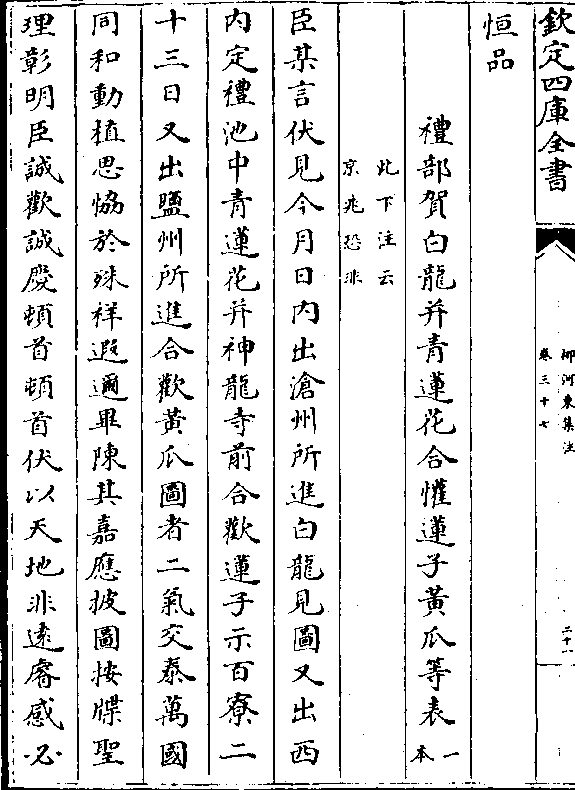 欽定四庫全書
柳河東集注
卷三十七
二十一
恒品
禮部賀白龍并青蓮花合懽蓮子黃瓜等表一本
此下注云
京兆恐非
臣某言伏見今月日内出滄州所進白龍見圖又出西
内定禮池中青蓮花并神龍寺前合歡蓮子示百寮二
十三日又出鹽州所進合歡黃瓜圖者二氣交泰萬國
同和動植思恊於殊祥遐邇畢陳其嘉應披圖按牒聖
理彰明臣誠歡誠慶頓首頓首伏以天地非逺睿感必